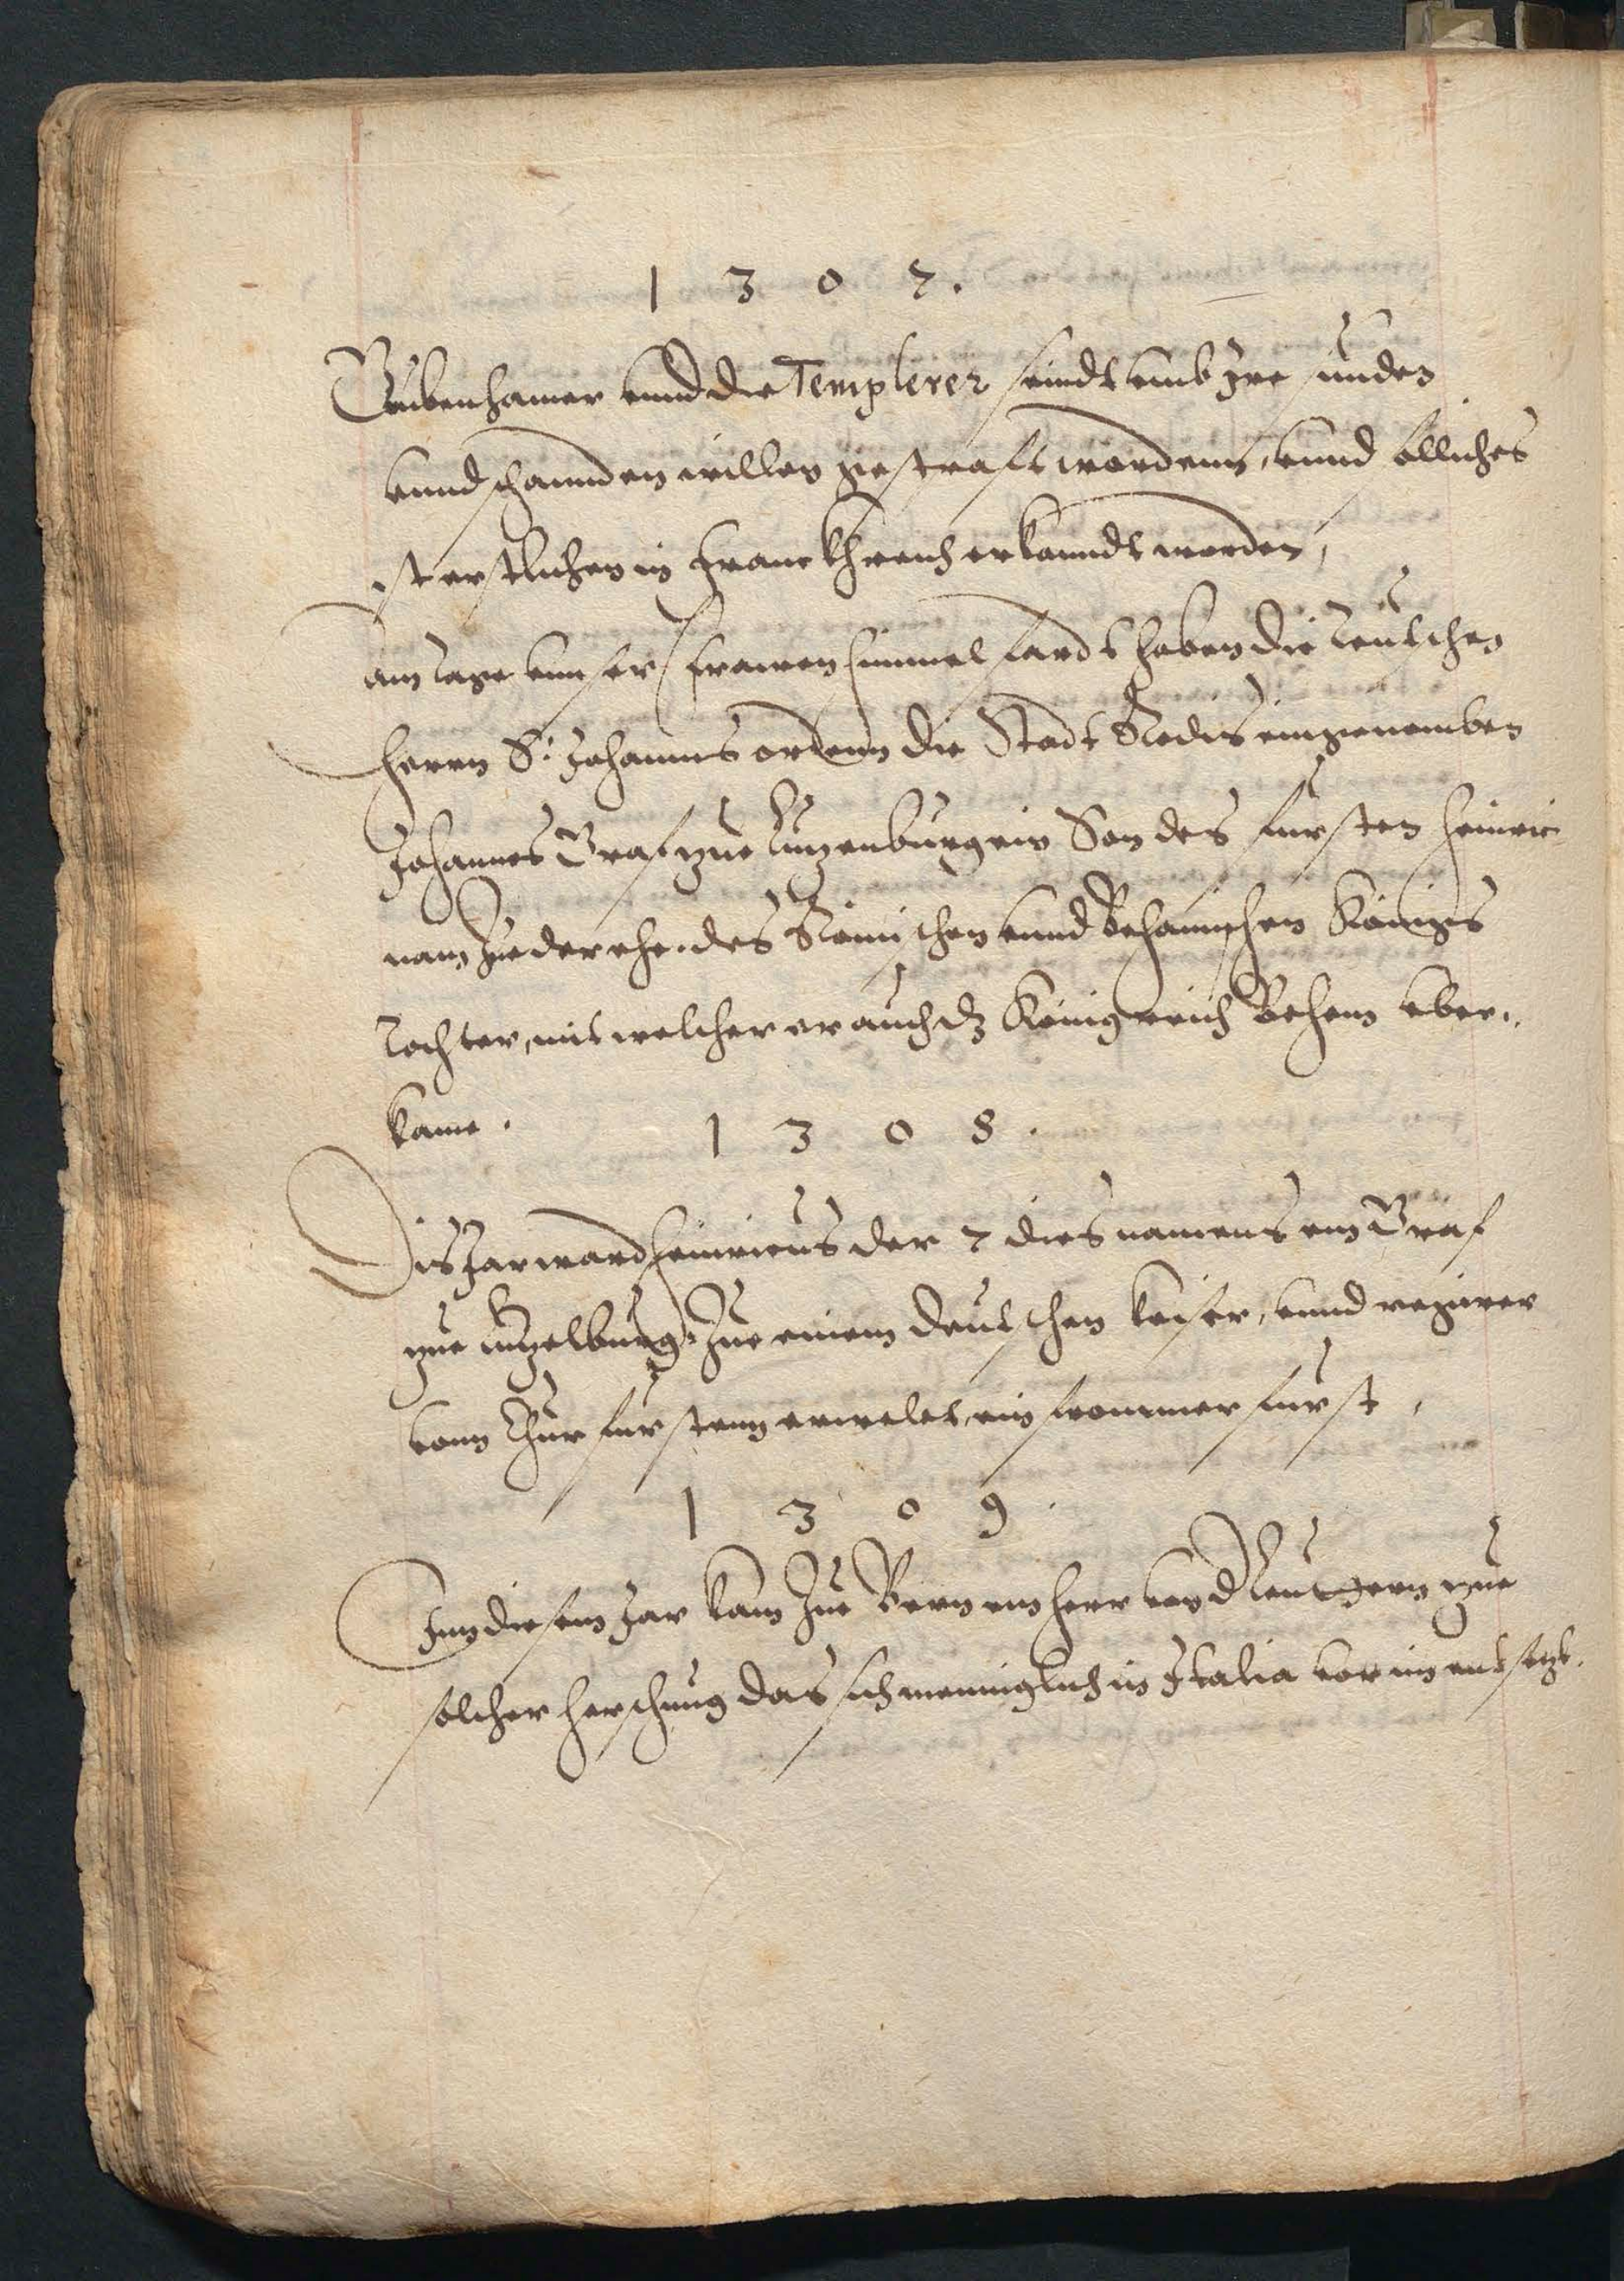 1 3 0 7 .
Grubenhamer vnnd die Templerer seindt vmb Ire sunden
vnnd schannden willen gestrafft wordenn, vnnd ölliches
ist erstlichen in Franckhreich erkanndt worden,
am tage vnnser frawen himmelfardt haben die teutschen
herrn S: Johanns ordenn die Stadt Rodis eingenomben
Johannes Graf zue Lutzenburg ein Son des fursten heinrici
nam zue der ehe des Römischen vnnd Behamischen Königs
tochter, mit welcher er auch dz Königreich Behem vber„
kame .
1 3 0 8 .
Dis Jar ward heinricus der 7 dies namens ein Graf
zue Lutzelburg, Zue einem deutschen keiser, vnnd regirer
vonn Churfurstenn erwelet, ein frommer furst,
1 3 0 9 .
Inn diesem Jar kam Zue Bern ein herr von d Leutgern zue
solcher herschung das sich menniglich in Italia vor im entsetzt.